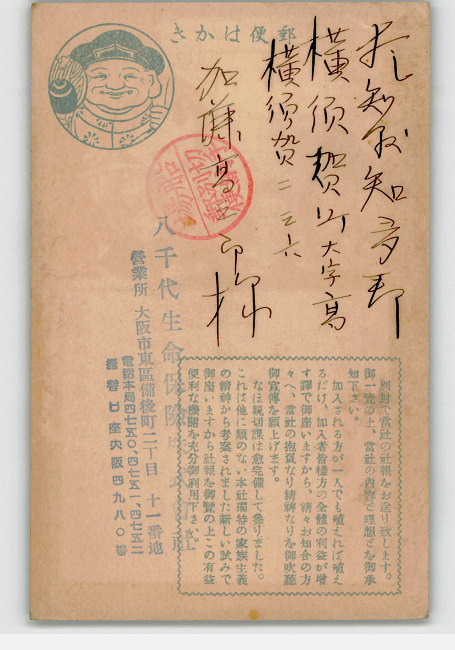 きかは便郵
愛知県知多郡
横須賀町大字高
横須賀二三六
加藤高三郎様
八千代生命保険株式会社
営業所 大阪市東區備後町二丁目十一番地
電話本局四七五〇、四七五一、四七五二
振替口座大阪四九八〇番
別封で當社の社報をお送り致します。
御一覽の上、當社の内容と理想とを御承
知下さい。
加入される方が一人でも殖えれば殖え
るだけ、加入者皆様方の全體の利益が增
す譯で御座いますから、精々お知合の方
々へ、當社の抱負なり精神なりを御吹聽
御宣傳を願上げます。
なほ親切課は愈完備して參りました。
これは他に類のない本社獨特の家族主義
の精神から考案されました新しい試みで
御座いますから社報を御覽の上この有益
便利な機關を充分御利用下さい。